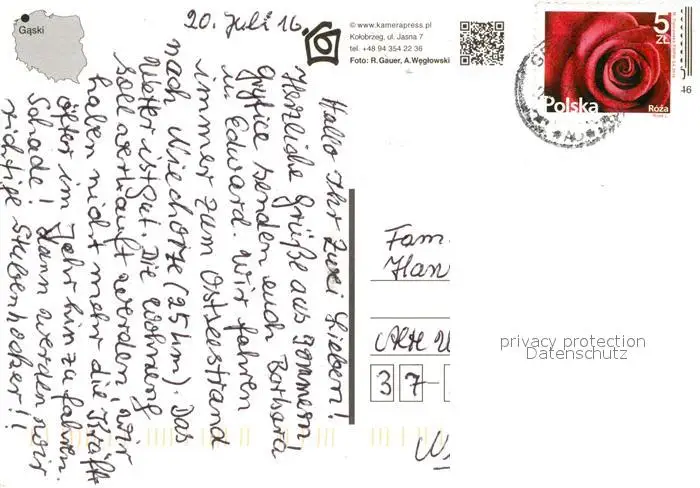 Gąski
20. Juli 16.
© www.kamerapress.pl
Kołobrzeg, ul. Jasna 7
tel. +48 94 354 22 36
Foto: R. Gauer, A.Węgłowski
5
ZŁ
Polska
Róża
46
Hallo Ihr Zwei Lieben!
Herzliche Grüße aus Pommern!
Gryfice senden euch Barbara
u. Edward. Wir fahren
immer zum Ostseestrand
nach Niechorze (25 km). Das
Wetter ist gut. Die Wohnung
soll verkauft werden, wir
haben nicht mehr die Kraft
öfter im Jahr hin zu fahren.
Schade! Dann werden wir
richtige Stubenhocker!!
Fam.
Han
Alte
37-
privacy protection
Datenschutz